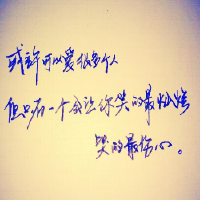 或許可以愛很多个人
但只有一个会让你笑的最灿烂
哭的最伤心。